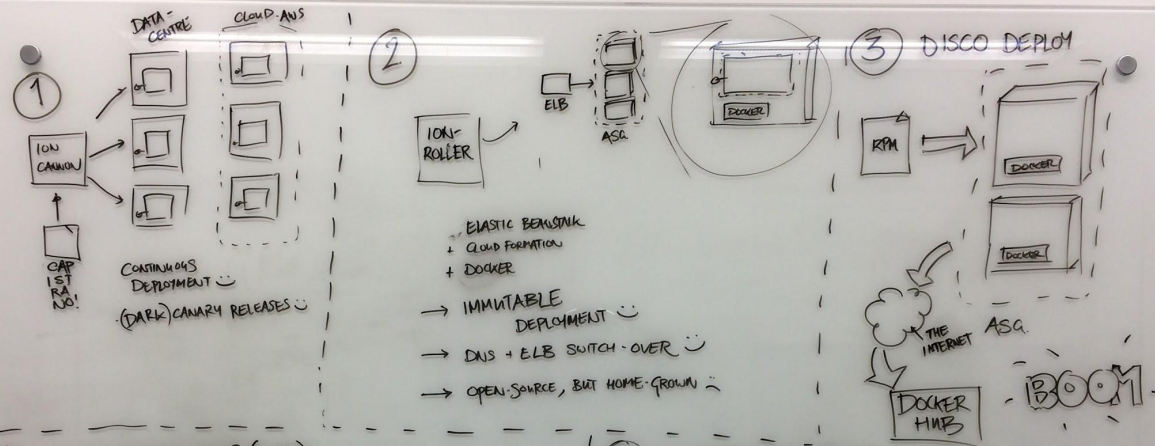 1
DATA-
CENTRE
CLOUD-AWS
ION
CANNON
CAP
IST
RA
NO!
CONTINUOUS
DEPLOYMENT
(DARK) CANARY RELEASES
2
ION-
ROLLER
ELB
ASG
DOCKER
ELASTIC BEANSTALK
+ CLOUD FORMATION
+ DOCKER
→ IMMUTABLE
DEPLOYMENT
→ DNS + ELB SWITCH-OVER
→ OPEN-SOURCE, BUT HOME-GROWN
3
DISCO DEPLOY
RPM
DOCKER
DOCKER
ASG.
THE
INTERNET
DOCKER
HUB
BOOM